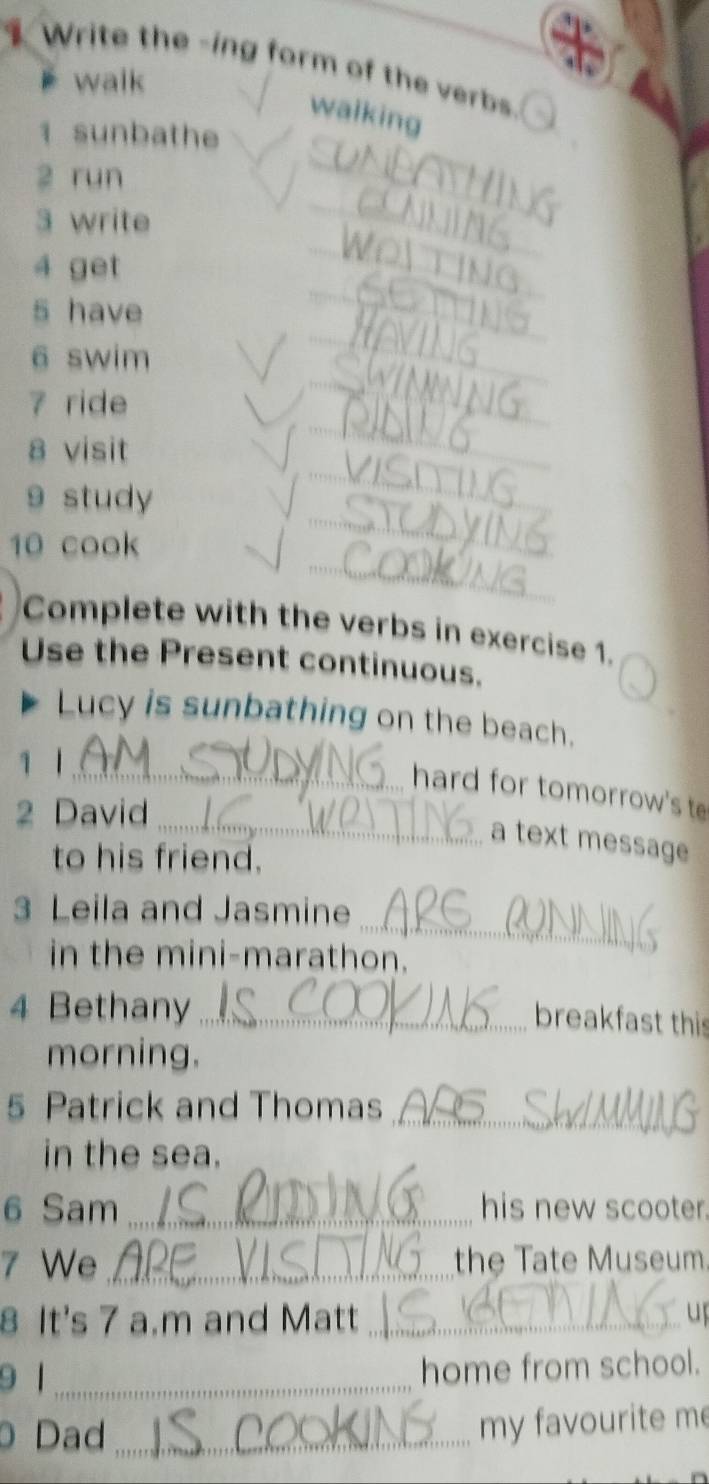 1 Write the -ing form of the verbs.
walk walking
1 sunbathe SUNBATHING
2 run RUNNING
3 write WRITING
4 get GETTING
5 have HAVING
6 swim SWIMMING
7 ride RIDING
8 visit VISITING
9 study STUDYING
10 cook COOKING
Complete with the verbs in exercise 1.
Use the Present continuous.
Lucy is sunbathing on the beach.
1 I AM STUDYING hard for tomorrow's te
2 David IS WRITING a text message
to his friend.
3 Leila and Jasmine ARE RUNNING
in the mini-marathon.
4 Bethany IS COOKING breakfast this
morning.
5 Patrick and Thomas ARE SWIMMING
in the sea.
6 Sam IS RIDING his new scooter.
7 We ARE VISITING the Tate Museum.
8 It's 7 a.m and Matt IS GETTING up
9 I home from school.
0 Dad IS COOKING my favourite me